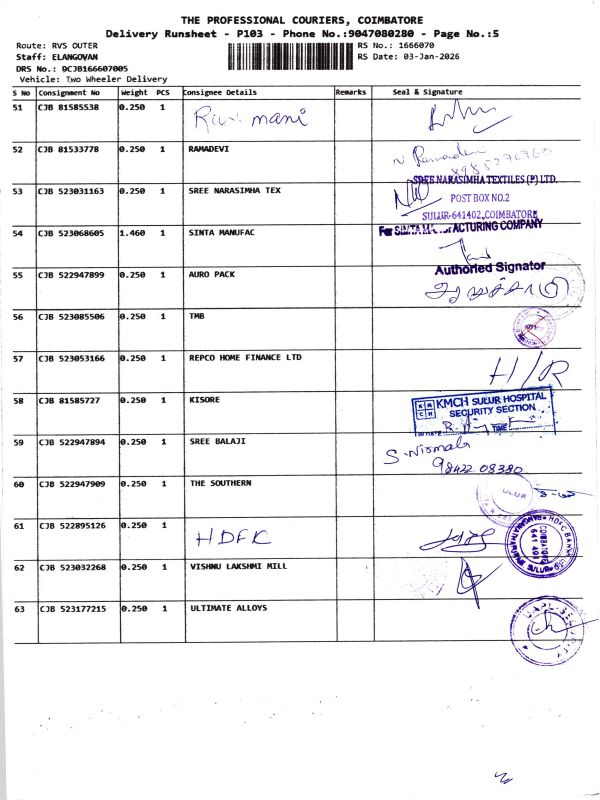 THE PROFESSIONAL COURIERS, COIMBATORE
Delivery Runsheet - P103 - Phone No.:9047080280 - Page No.:5
Route: RVS OUTER
RS No.: 1666070
Staff: ELANGOVAN
RS Date: 03-Jan-2026
DRS No.: DCJB166607005
Vehicle: Two Wheeler Delivery
S No Consignment No Weight PCS Consignee Details Remarks Seal & Signature
51 CJB 81585538 0.250 1 mani
52 CJB 81533778 0.250 1 RAMADEVI N Ramadevi
SREE NARASIMHA TEXTILES (P) LTD.
53 CJB 523031163 0.250 1 SREE NARASIMHA TEX POST BOX NO.2
SULUR-641402, COIMBATORE
54 CJB 523068605 1.460 1 SINTA MANUFAC For SINTA MANUFACTURING COMPANY
Authoried Signator
55 CJB 522947899 0.250 1 AURO PACK
56 CJB 523085506 0.250 1 TMB
57 CJB 523053166 0.250 1 REPCO HOME FINANCE LTD H/R
58 CJB 81585727 0.250 1 KISORE KMCH SULUR HOSPITAL
SECURITY SECTION
TIME
59 CJB 522947894 0.250 1 SREE BALAJI S. Nirmala
98422 08380
60 CJB 522947909 0.250 1 THE SOUTHERN SULUR
61 CJB 522895126 0.250 1 HDFC HDFC BANK
COIMBATORE
641 401
SULUR
62 CJB 523032268 0.250 1 VISHNU LAKSHMI MILL
63 CJB 523177215 0.250 1 ULTIMATE ALLOYS UAPL-SECURITY